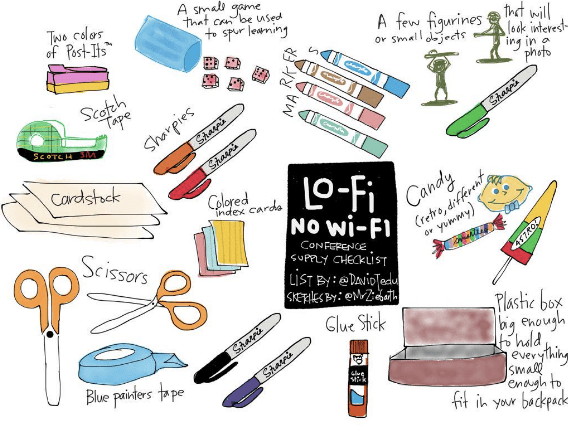 Two colors
of Post-Its™
A small game
that can be used
to spur learning
MARKERS
A few figurines
or small objects
that will
look interest-
ing in a
photo
Scotch
Tape
SCOTCH 3M
Sharpies
Sharpie
Sharpie
Sharpie
Cardstock
Colored
index cards
LO-Fi
NO Wi-Fi
CONFERENCE
SUPPLY CHECKLIST
LIST BY: @DavidTedu
SKETCHES BY: @MrZiebarth
Candy
(retro, different
or yummy)
ASTRO
Scissors
Blue painters tape
Sharpie
Sharpie
Glue Stick
Glue
Stick
Plastic box
big enough
to hold
everything
small
enough to
fit in your backpack